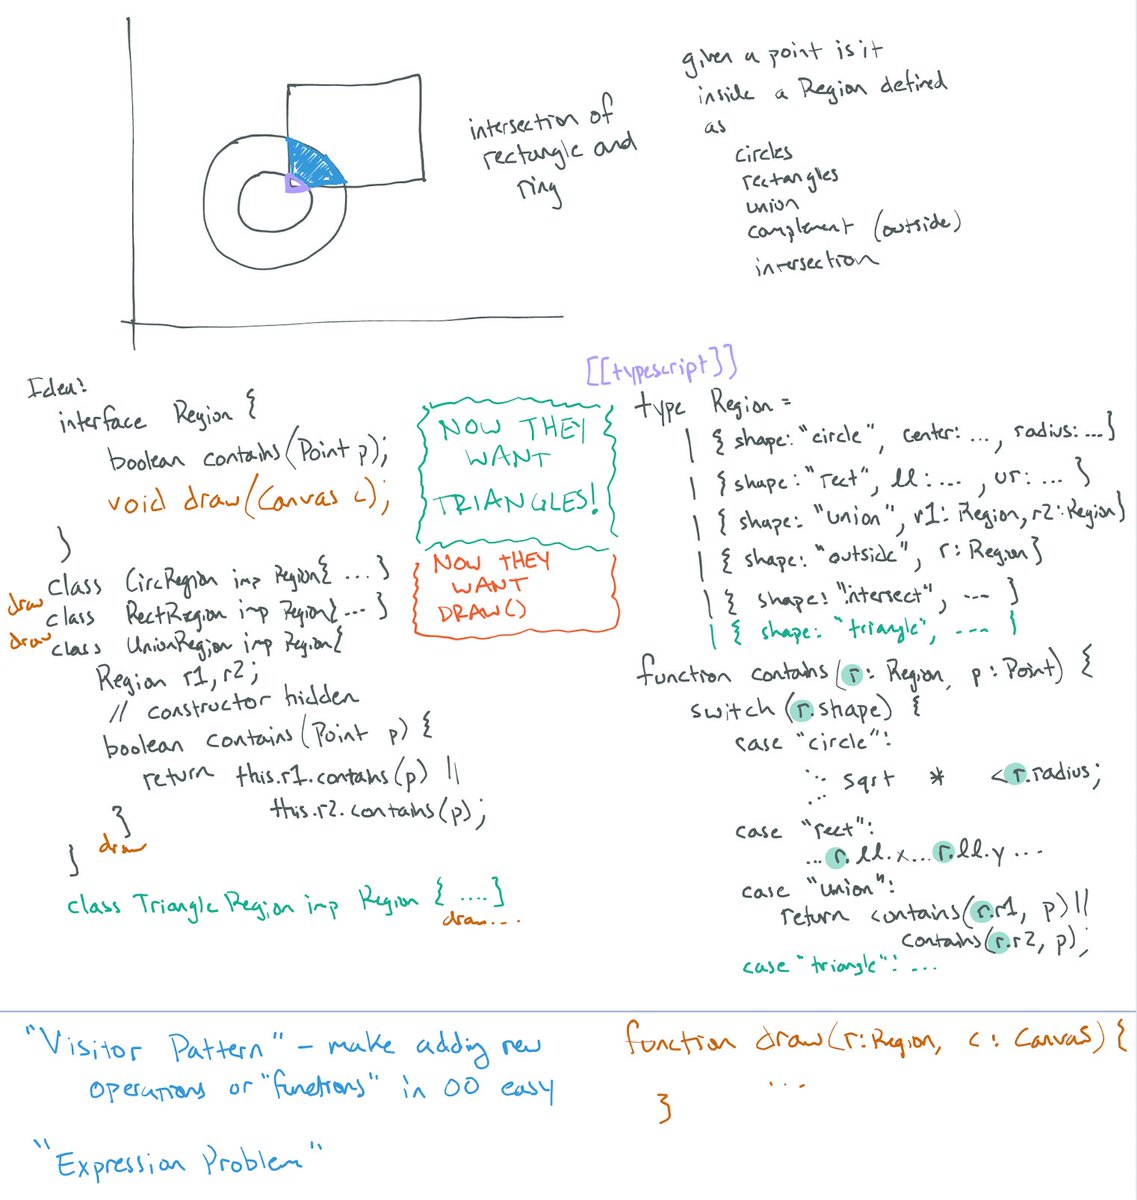 given a point is it
inside a Region defined
as
circles
rectangles
union
complement (outside)
intersection
intersection of
rectangle and
ring
Idea:
interface Region {
boolean contains(Point p);
void draw(Canvas c);
}
class CircRegion imp Region{ ... }
draw
class RectRegion imp Region{ ... }
draw
class UnionRegion imp Region{
Region r1, r2;
// constructor hidden
boolean contains(Point p) {
return this.r1.contains(p) ||
this.r2.contains(p);
}
draw
}
class TriangleRegion imp Region { .... }
draw...
NOW THEY
WANT
TRIANGLES!
NOW THEY
WANT
DRAW()
[[typescript]]
type Region =
| { shape: "circle", center: ..., radius: ... }
| { shape: "rect", ll: ... , ur: ... }
| { shape: "union", r1: Region, r2: Region}
| { shape: "outside", r: Region}
| { shape: "intersect", --- }
| { shape: "triangle", --- }
function contains(r: Region, p: Point) {
switch (r.shape) {
case "circle":
sqrt * < r.radius;
case "rect":
... r.ll.x... r.ll.y ...
case "union":
return contains(r.r1, p) ||
contains(r.r2, p);
case "triangle": ...
"Visitor Pattern" - make adding new
operations or "functions" in OO easy
"Expression Problem"
function draw(r: Region, c: Canvas) {
...
}